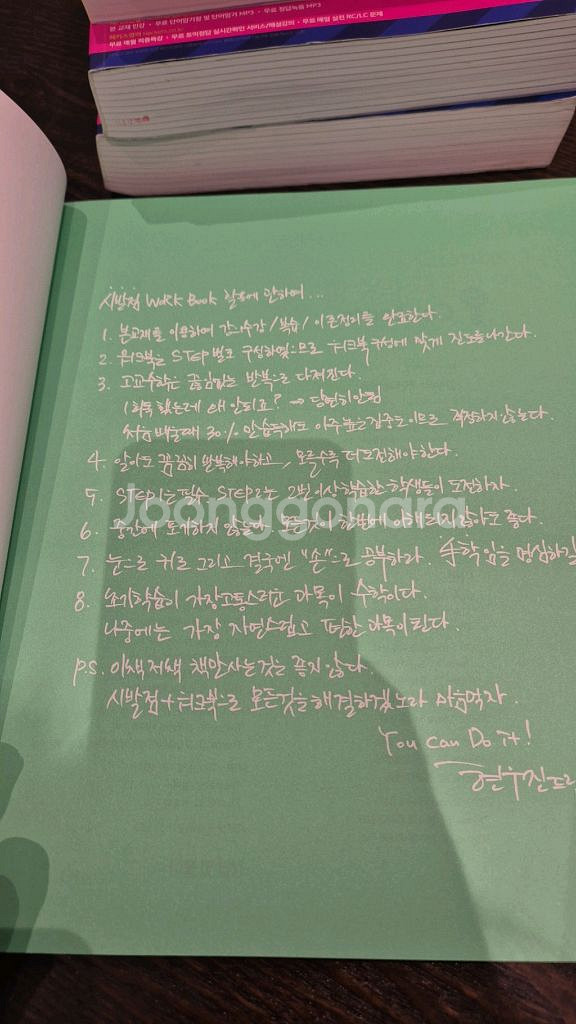 본 교재 인강 · 무료 단어암기장 및 단어암기 MP3 · 무료 정답녹음 MP3
무료 매월 적중특강 · 무료 토익정답 실시간확인 서비스/해설강의 · 무료 매월 실전 RC/LC 문제
시발점 WORK BOOK 활용에 관하여...
1. 본교재를 이용하여 강의수강/복습/이론정리를 완료한다.
2. 워크북은 STEP별로 구성하였으므로 워크북 구성에 맞게 진도를 나간다.
3. 고교수학은 끊임없는 반복으로 다져진다.
1회독 했는데 왜 안되죠? → 당연히 안됨
처음 배울때 30%만 습득해도 아주 높은 집중도이므로 걱정하지 않는다.
4. 알아도 꼼꼼히 반복해야하고, 모를수록 더 도전해야한다.
5. STEP1는 필수, STEP2는 2번이상 학습한 학생들이 도전하자.
6. 중간에 포기하지 않는다. 모든것이 한번에 이해되지 않아도 좋다.
7. 눈으로 귀로 그리고 결국엔 "손"으로 공부하라. 手학임을 명심하길
8. 초기학습이 가장 고통스러운 과목이 수학이다.
나중에는 가장 자연스럽고 편한 과목이 된다.
p.s. 이책 저책 책만 사는것은 좋지 않다.
시발점+워크북으로 모든것을 해결하겠노라 마음먹자.
You can Do it!
현우진드림
Joonggonara